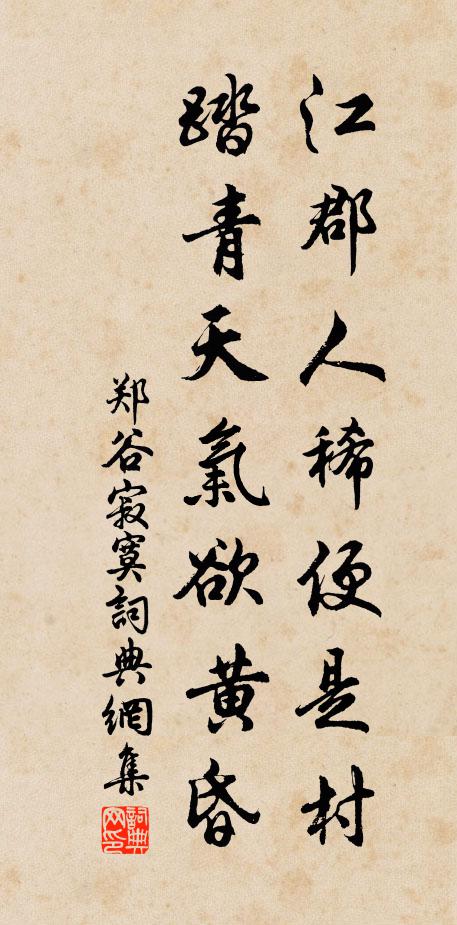 江郡人稀便是村
踏青天氣欲黄昏
郑谷寂寞詞典網集
詞典网印